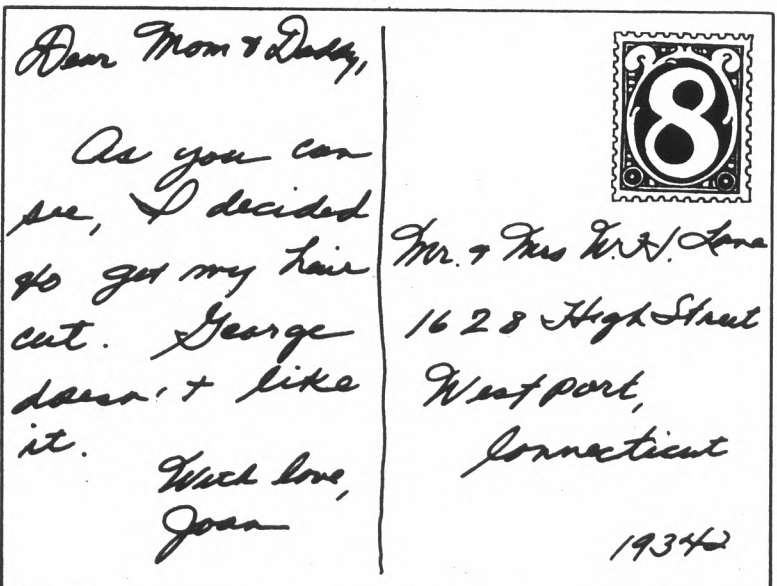 Dear Mom & Daddy,
As you can
see, I decided
to get my hair
cut. George
doesn't like
it.
With love,
Joan
8
Mr. & Mrs W.H. Lane
1628 High Street
Westport,
Connecticut
19342